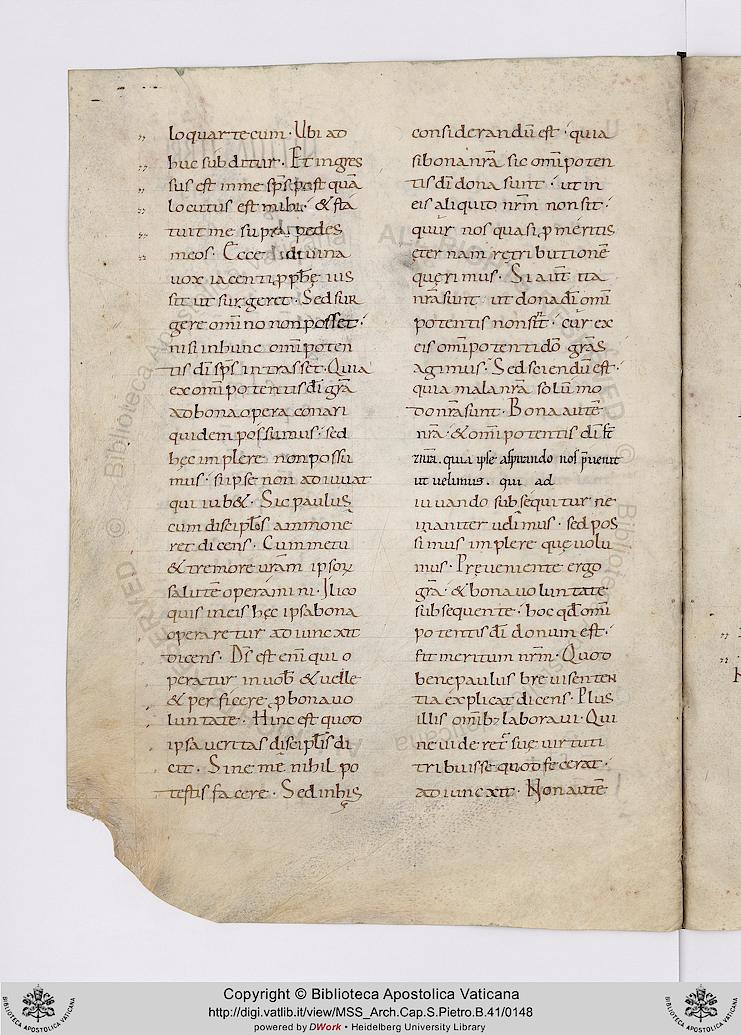 loquar tecum· Ubi ad
huc subditur· Et ingres
sus est in me sp̄s· post quā
locutus est mihi· & sta
tuit me sup pedes
meos· Ecce di diuina
uox iacenti p̱pħę uis
sit ut surgeret· Sed sur
gere omīno non posset·
nisi in hunc omīpoten
tis dī sp̄s intrasset· Quia
ex omīpotentis dī grā
ad bona opera conari
quidem possumus· sed
hęc implere non possu
mus· si ipse non adiuuat
qui iub&· Sic paulus
cum discipl̄os ammone
ret dicens· Cum metu
& tremore uram̄ ipsoꝝ
salutē operamini· Ilico
quis in eis hęc ipsa bona
operaretur adiunxit
dicens· Dī s est enī qui o
peratur in uob̄ & uelle
& perficere p̱ bona uo
luntate· Hinc est quod
ipsa ueritas discipl̄is di
cit· Sine mē nihil po
testis facere· Sed in his
considerandū est· quia
si bona nrā sic omīpoten
tis dī dona sunt· ut in
eis aliquid nrm̄ non sit·
cuur nos quasi p̱ meritis
ęternam retributionē
quęrimus· Si aut̄ ita
nrā sunt ut dona dī omī
potentis non sint· cur ex
eis omīpotenti dō grās
agimus· Sed sciendū est·
quia mala nrā solū mo
do nrā sunt· Bona autē
nrā· & omīpotentis dī st̄
& nrā· quia ipse aspirando nos p̄uenit
ut uelimus· qui ad
iuuando subsequitur ne
inaniter uelimus· sed pos
simus implere quę uolu
mus· Pręueniente ergo
grā· & bona uoluntate
subsequente· hoc qd̄ omī
potentis dī donum est·
fit meritum nrm̄· Quod
bene paulus breui senten
tia explicat dicens· Plus
illis omīb; laboraui· Qui
ne uideret̄ suę uirtuti
tribuisse quod fecerat·
adiunxit· Non autē
Copyright © Biblioteca Apostolica Vaticana
http://digi.vatlib.it/view/MSS_Arch.Cap.S.Pietro.B.41/0148
powered by DWork • Heidelberg University Library